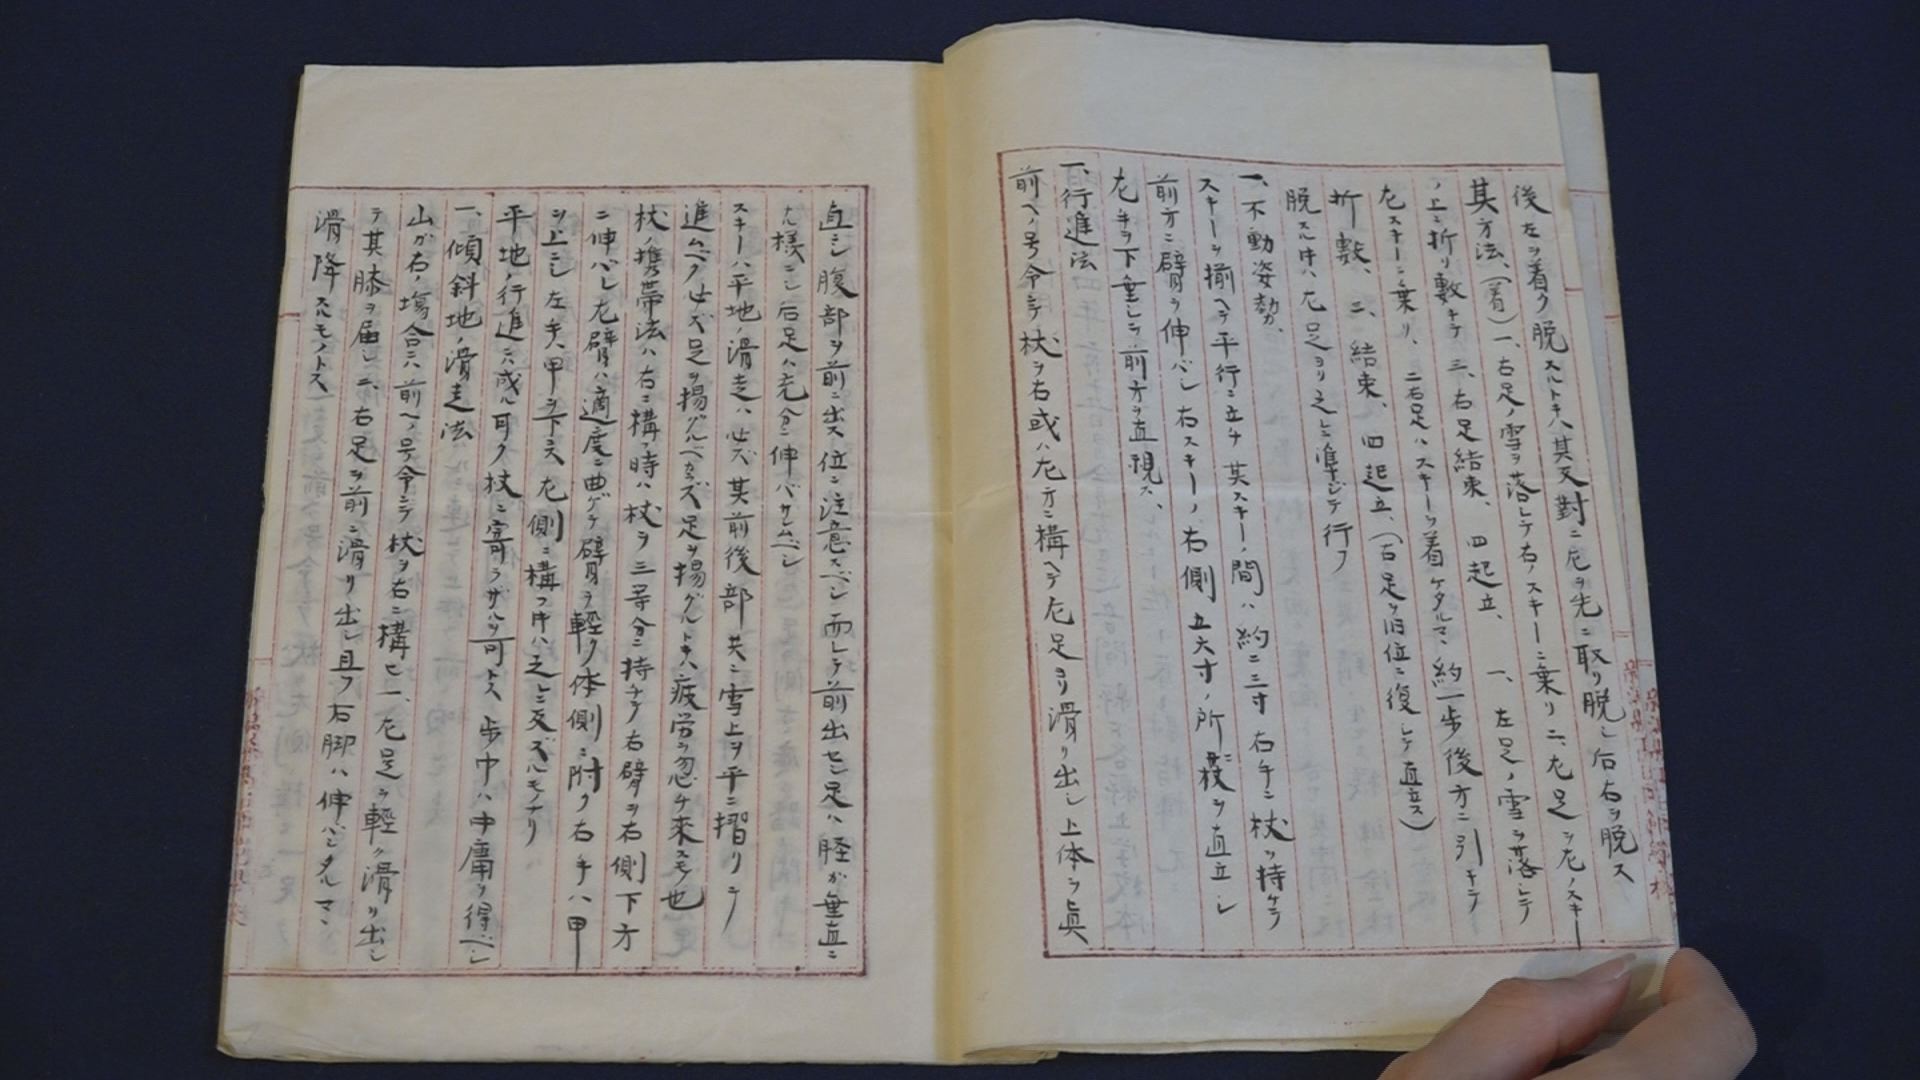 後左ヲ着ク脱スルトキハ其反對ニ左ヲ先ニ取リ脱シ后右ヲ脱ス
其方法、(着)一、右足ノ雪ヲ落シテ右ノスキーニ乗リ二、左足ヲ左ノスキー
ノ上ニ折リ敷キテ三、右足結束、四起立、一、左足ノ雪ヲ落シテ
左スキーニ乗リ、二右足ハスキーヲ着ケタルマヽ約一歩後方ニ引キテ
折敷、三、結束、四起立、(右足ヲ旧位ニ復シテ直立ス)
脱スル時ハ左足ヨリ之レニ準ジテ行フ
一、不動姿勢、
スキーヲ揃ヘテ平行ニ立チ其スキーノ間ハ約二三寸右手ニ杖ヲ持ケテ
前方ニ臂ヲ伸バシ右スキーノ右側五六寸ノ所ニ杖ヲ直立シ
左手ヲ下垂シテ前方ヲ直視ス、
一、行進法
前ヘノ号令ニテ杖ヲ右或ハ左方ニ構ヘテ左足ヨリ滑リ出シ上体ヲ真
直ニシ腹部ヲ前ニ出ス位ニ注意スベシ而シテ前出セシ足ハ脛ガ垂直ニ
ナル様ニシ后足ハ充分ニ伸バサルベシ
スキーハ平地ノ滑走ハ必ズ其前後部共ニ雪上ヲ平ニ摺リテ
進ムベク必ズ足ヲ揚グルベカラズ足ヲ揚グルトキハ疲労ヲ忽チ来スモノ也
杖ノ携帯法ハ右ニ構フ時ハ杖ヲ三等分ニ持チテ右臂ヲ右側下方
ニ伸バシ左臂ハ適度ニ曲ゲテ臂ヲ軽ク体側ニ附ク右手ハ甲
ヲ上ニシ左手ハ甲ヲ下ニス左側ニ構フ時ハ之レニ反ズルモノナリ
平地ノ行進ニハ成ル可ク杖ニ寄ラザルヲ可トス歩巾ハ中庸ヲ得ベシ
一、傾斜地ノ滑走法
山ガ右ノ塲合ニハ前ヘノ号令ニテ杖ヲ右ニ構ヒ一、左足ヲ軽ク滑リ出シ
テ其膝ヲ届シ二、右足ヲ前ニ滑リ出シ且ツ右脚ハ伸バシタルマヽ
滑降スルモノトス